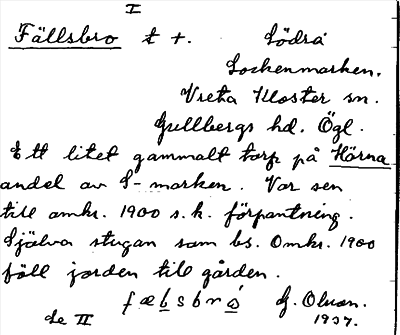 I
Fällsbro t +. Södra
Sockenmarken.
Vreta Kloster sn.
Gullbergs hd. Ögl.
Ett litet gammalt torp på Hörna
andel av S-marken. Var sen
till omkr. 1900 s.k. förpantning.
Själva stugan såm bs. Omkr. 1900
föll jorden till gården.
fæbsbrὼ G. Olson.
Se II 1937.